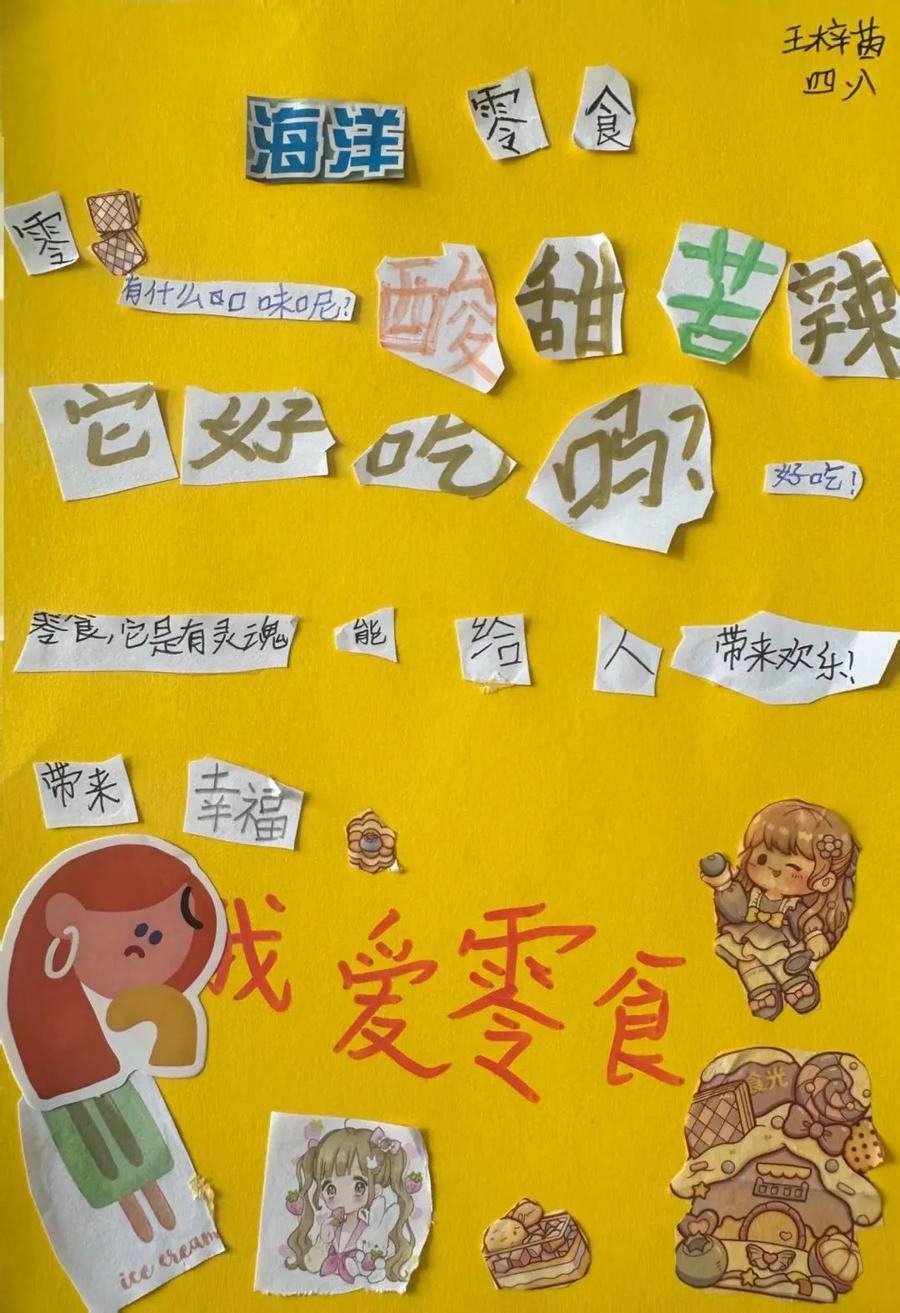 王梓茜
四八
海洋 零食
零
有什么口味呢?
酸甜苦辣
它好吃吗? 好吃!
零食,它是有灵魂 能 给 人 带来欢乐!
带来 幸福
我爱零食
食光
ice cream